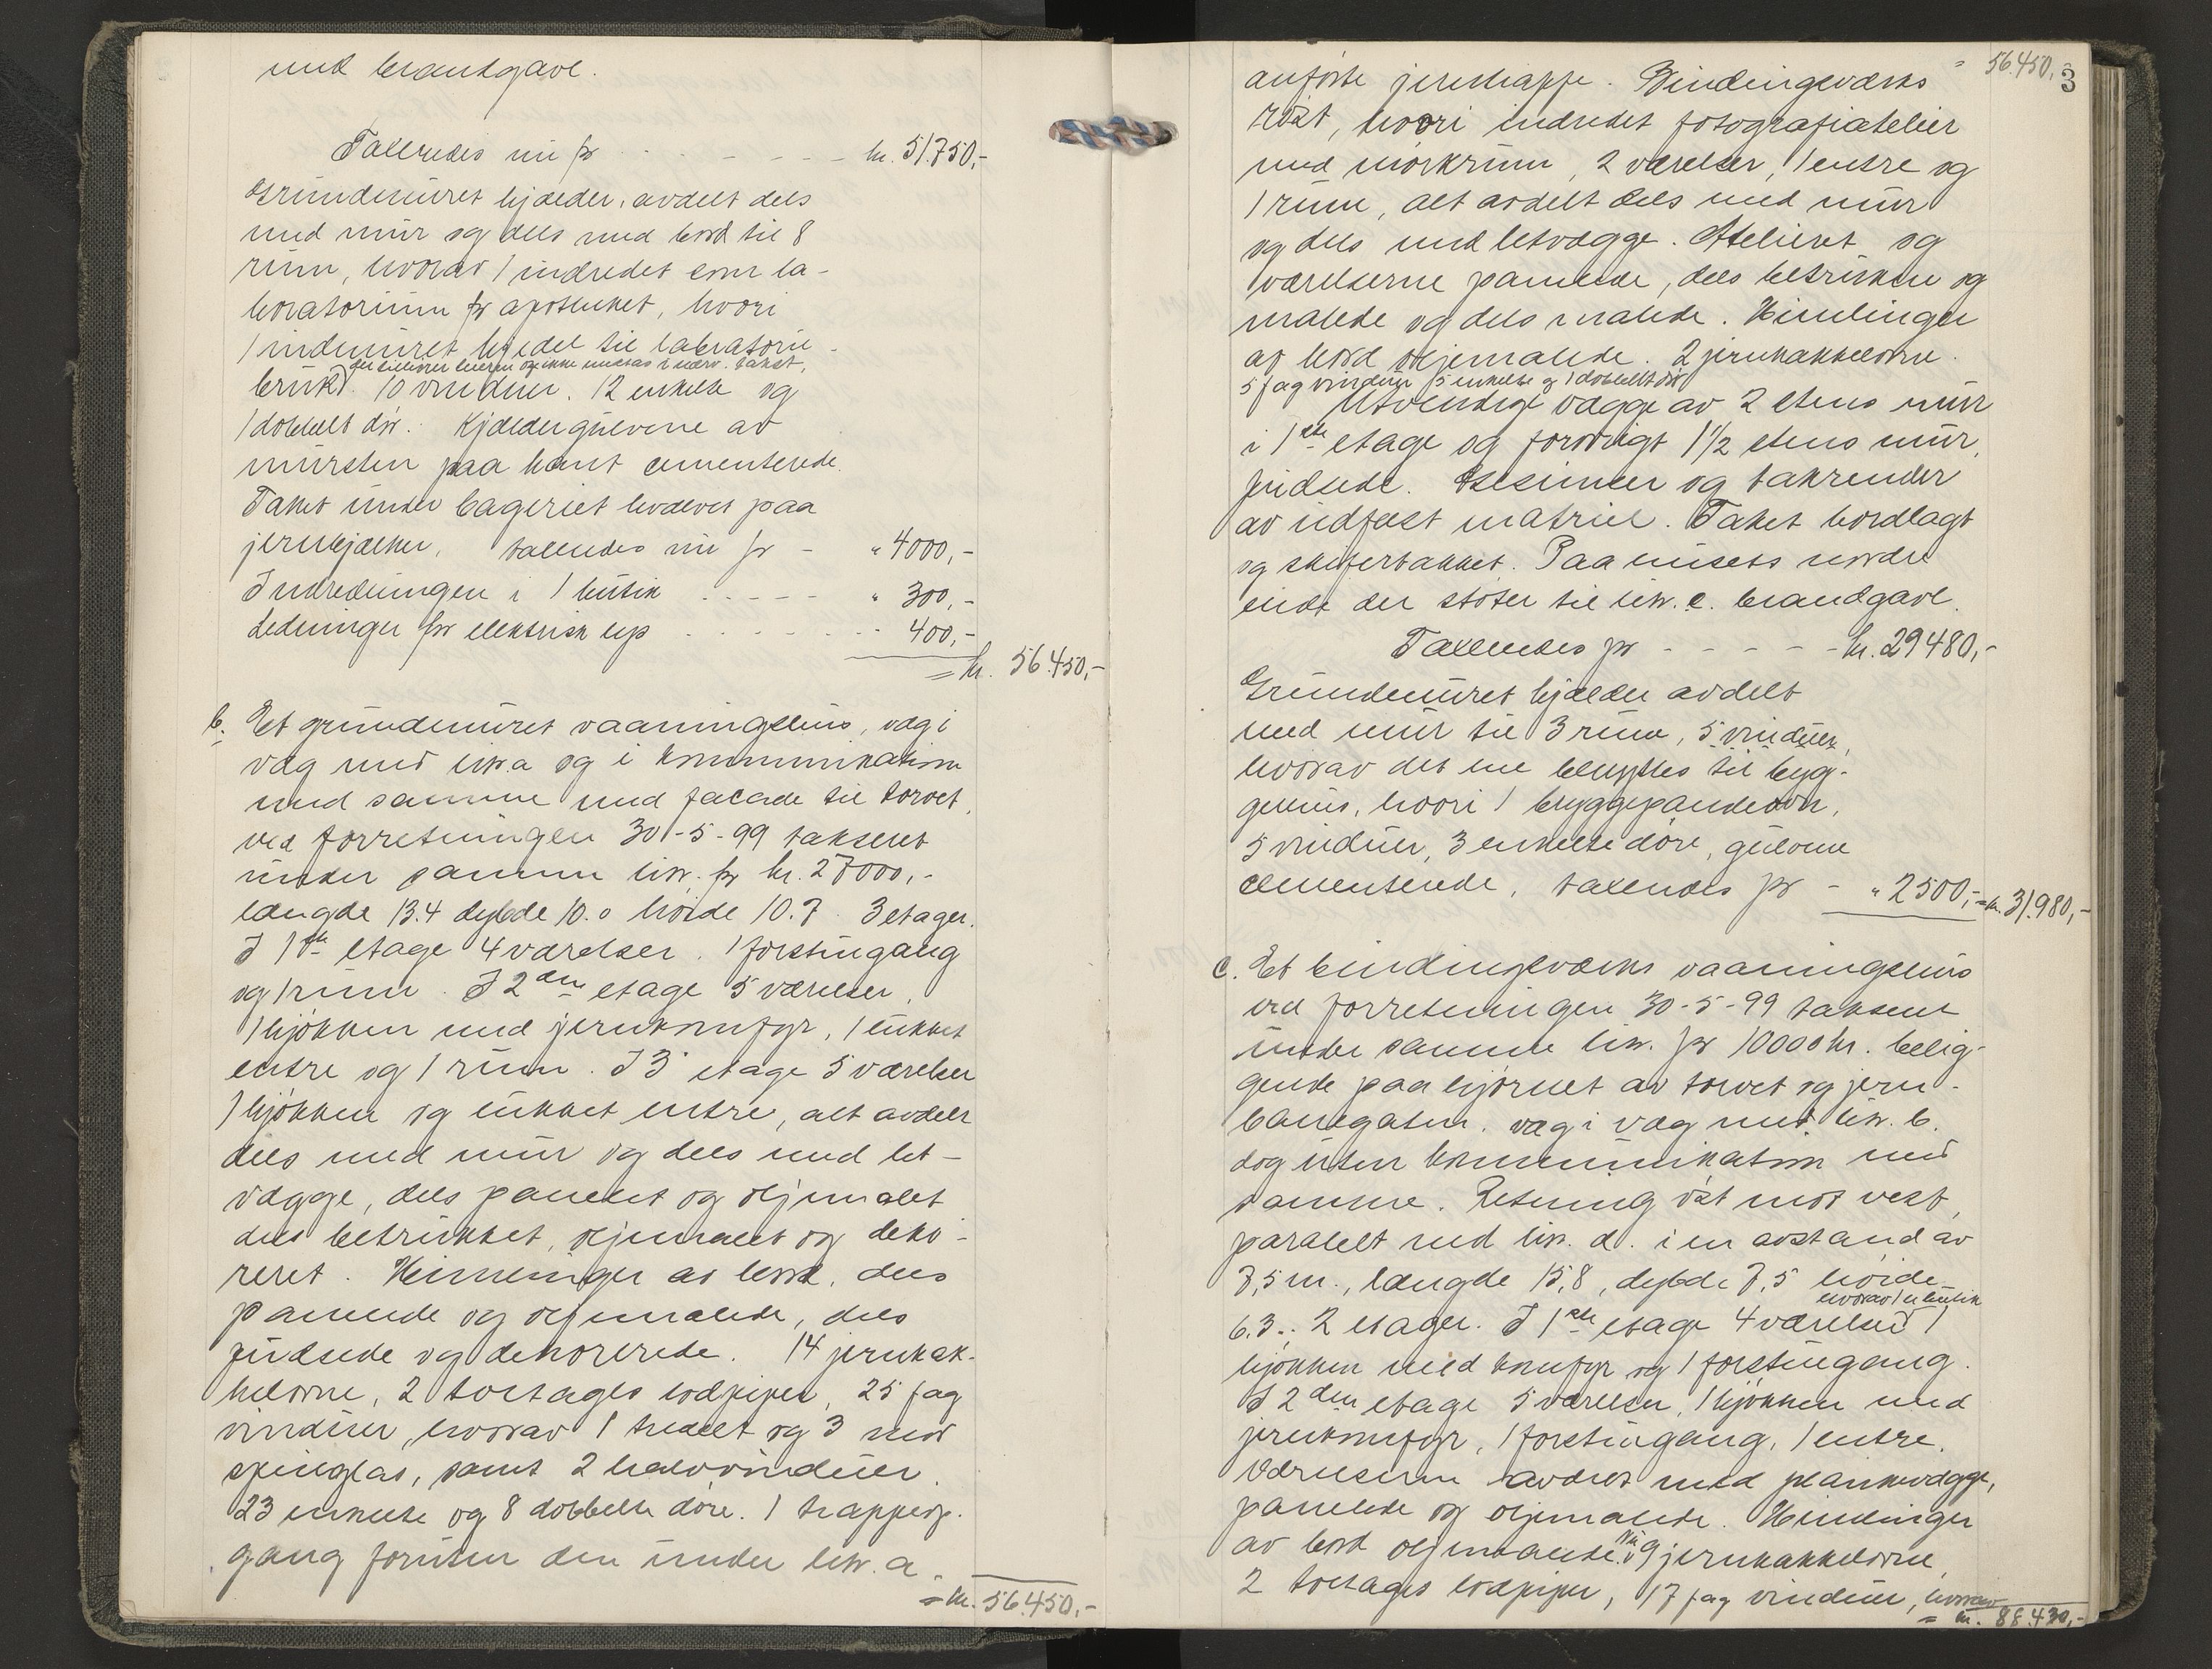 med brandgavl.
Takseredes nu for - - - - kr. 51.750,-
Grundmuret kjælder, avdelt dels
med mur og dels med bord til 8
rum, hvorav 1 indredet som la-
boratorium for apotheket, hvori
1 indmuret kjedel til laboratorie-
der tilhører leieren og ikke medtas i nærv. takst,
bruk. 10 vinduer. 12 enkelte og
1 dobbelt dør. Kjældergulvene av
mursten paa kant cementerede.
Taket under bageriet hvælvet paa
jernbjælker, takseredes nu for - " 4000,-
Indredningen i 1 butik - - - - " 300,-
Ledninger for elektrisk lys - - - - " 400,-
= kr. 56.450,-
b. Et grundmuret vaaningshus, væg i
væg med litr. a og i kommunikation
med samme med facade til torvet,
ved forretningen 30-5-99 takseret
under samme litr. for kr. 27000,-
længde 13.4 dybde 10.0 høide 10.7. 3 etager.
I 1ste etage 4 værelser, 1 forstugang
og 1 rum. I 2den etage 5 værelser,
1 kjøkken med jernkomfyr, 1 lukket
entre og 1 rum. I 3' etage 5 værelser
1 kjøkken og lukket entre, alt avdelt
dels med mur og dels med let-
vægge, dels panelet og oljemalet
dels betrukket, oljemalet og deko-
reret. Himlinger av bord, dels
panelede og oljemalede, dels
pudsede og dekorerede. 14 jernkak-
kelovne, 2 toetages lodpiper, 25 fag
vinduer, hvorav 1 tredelt og 3 med
speilglas, samt 2 halvvinduer.
23 enkelte og 8 dobbelte døre. 1 trappeop-
gang foruten den under litr. a
= kr. 56.450,-
56.450,- 3
anførte jerntrappe. Bindingsverks
røst, hvori indredet fotografiatelier
med mørkrum, 2 værelser, 1 entre og
1 rum, alt avdelt dels med mur
og dels med letvægge. Atelieret og
værelserne panelede, dels betrukne og
malede og dels malede. Himlinger
av bord oljemalede. 2 jernkakkelovne.
5 fag vinduer, 5 enkelte og 1 dobbelt dør
Utvendige vægge av 2 stens mur
i 1ste etage og forøvrigt 1 1/2 stens mur,
pudsede. Gesimser og takrender
av ildfast matriel. Taket bordlagt
og skifertækket. Paa husets nordre
ende der støter til litr. c. brandgavl.
Takseredes for - - - - kr. 29480,-
Grundmuret kjælder avdelt
med mur til 3 rum, 5 vinduer,
hvorav det ene benyttes til bryg-
gerhus, hvori 1 bryggepandeovn,
5 vinduer, 3 enkelte døre, gulvene
cementerede, takseredes for - " 2500,- = kr. 31.980,-
c. Et bindingsverks vaaningshus
ved forretningen 30-5-99 takseret
under samme litr. for 10000 kr. belig-
gende paa hjørnet av torvet og jern-
banegaten, væg i væg med litr. b.
dog uten kommunikation med
samme. Retning øst mot vest,
paralelt med litr. d. i en avstand av
7,5 m., længde 15,8, dybde 7,5 høide
hvorav 1 er butik
6.3. 2 etager. I 1ste etage 4 værelser 1
kjøkken med komfyr og 1 forstugang.
I 2den etage 5 værelser, 1 kjøkken med
jernkomfyr, 1 forstugang, 1 entre.
Værelserne avdelt med plankevægge,
panelede og oljemalede. Himlinger
av bord oljemalede. 9 jernkakkelovne,
2 toetages lodpiper, 17 fag vinduer, hvorav
= kr. 88.430,-